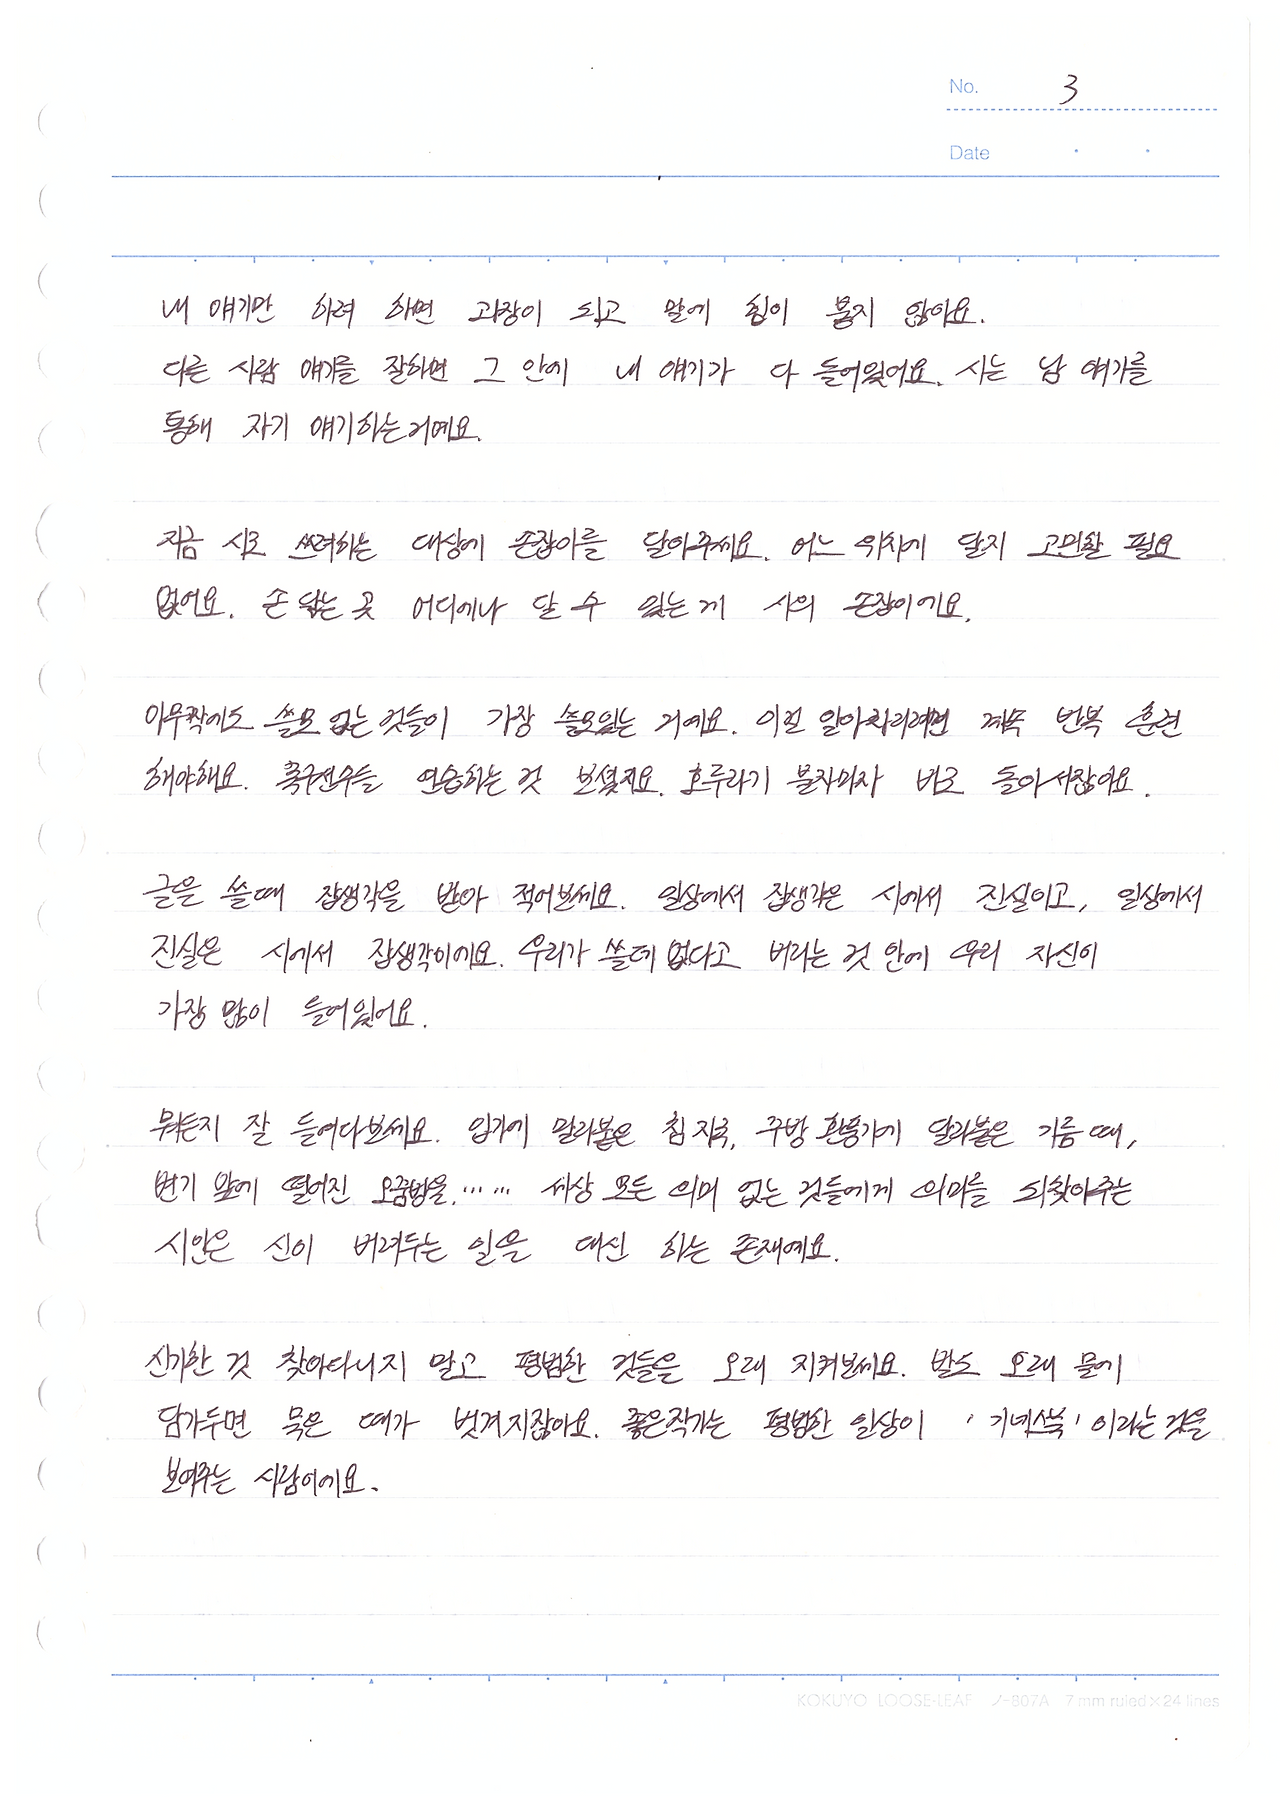 No. 3
Date
내 얘기만 하려 하면 과장이 되고 말에 힘이 붙지 않아요.
다른 사람 얘기를 잘하면 그 안에 내 얘기가 다 들어있어요. 시는 남 얘기를
통해 자기 얘기하는거예요.
지금 시로 쓰려하는 대상에 손잡이를 달아주세요. 어느 위치에 달지 고민할 필요
없어요. 손 닿는 곳 어디에나 달 수 있는게 시의 손잡이에요.
아무짝에도 쓸모 없는 것들이 가장 쓸모있는 거예요. 이걸 알아차리려면 계속 반복 훈련
해야해요. 축구선수들 연습하는 것 보셨지요. 호루라기 불자마자 바로 돌아서잖아요.
글을 쓸때 잡생각을 받아 적어보세요. 일상에서 잡생각은 시에서 진실이고, 일상에서
진실은 시에서 잡생각이에요. 우리가 쓸데없다고 버리는 것 안에 우리 자신이
가장 많이 들어있어요.
뭐든지 잘 들여다보세요. 입가에 말라붙은 침 자국, 주방 환풍기에 달라붙은 기름 때,
변기 앞에 떨어진 오줌방울…… 세상 모든 의미 없는 것들에게 의미를 되찾아주는
시인은 신이 버려두는 일을 대신 하는 존재예요.
신기한 것 찾아다니지 말고 평범한 것들을 오래 지켜보세요. 발도 오래 물에
담가두면 묵은 때가 벗겨지잖아요. 좋은작가는 평범한 일상이 '기네스북' 이라는 것을
보여주는 사람이에요.
KOKUYO LOOSE-LEAF ノ-807A 7 mm ruled×24 lines